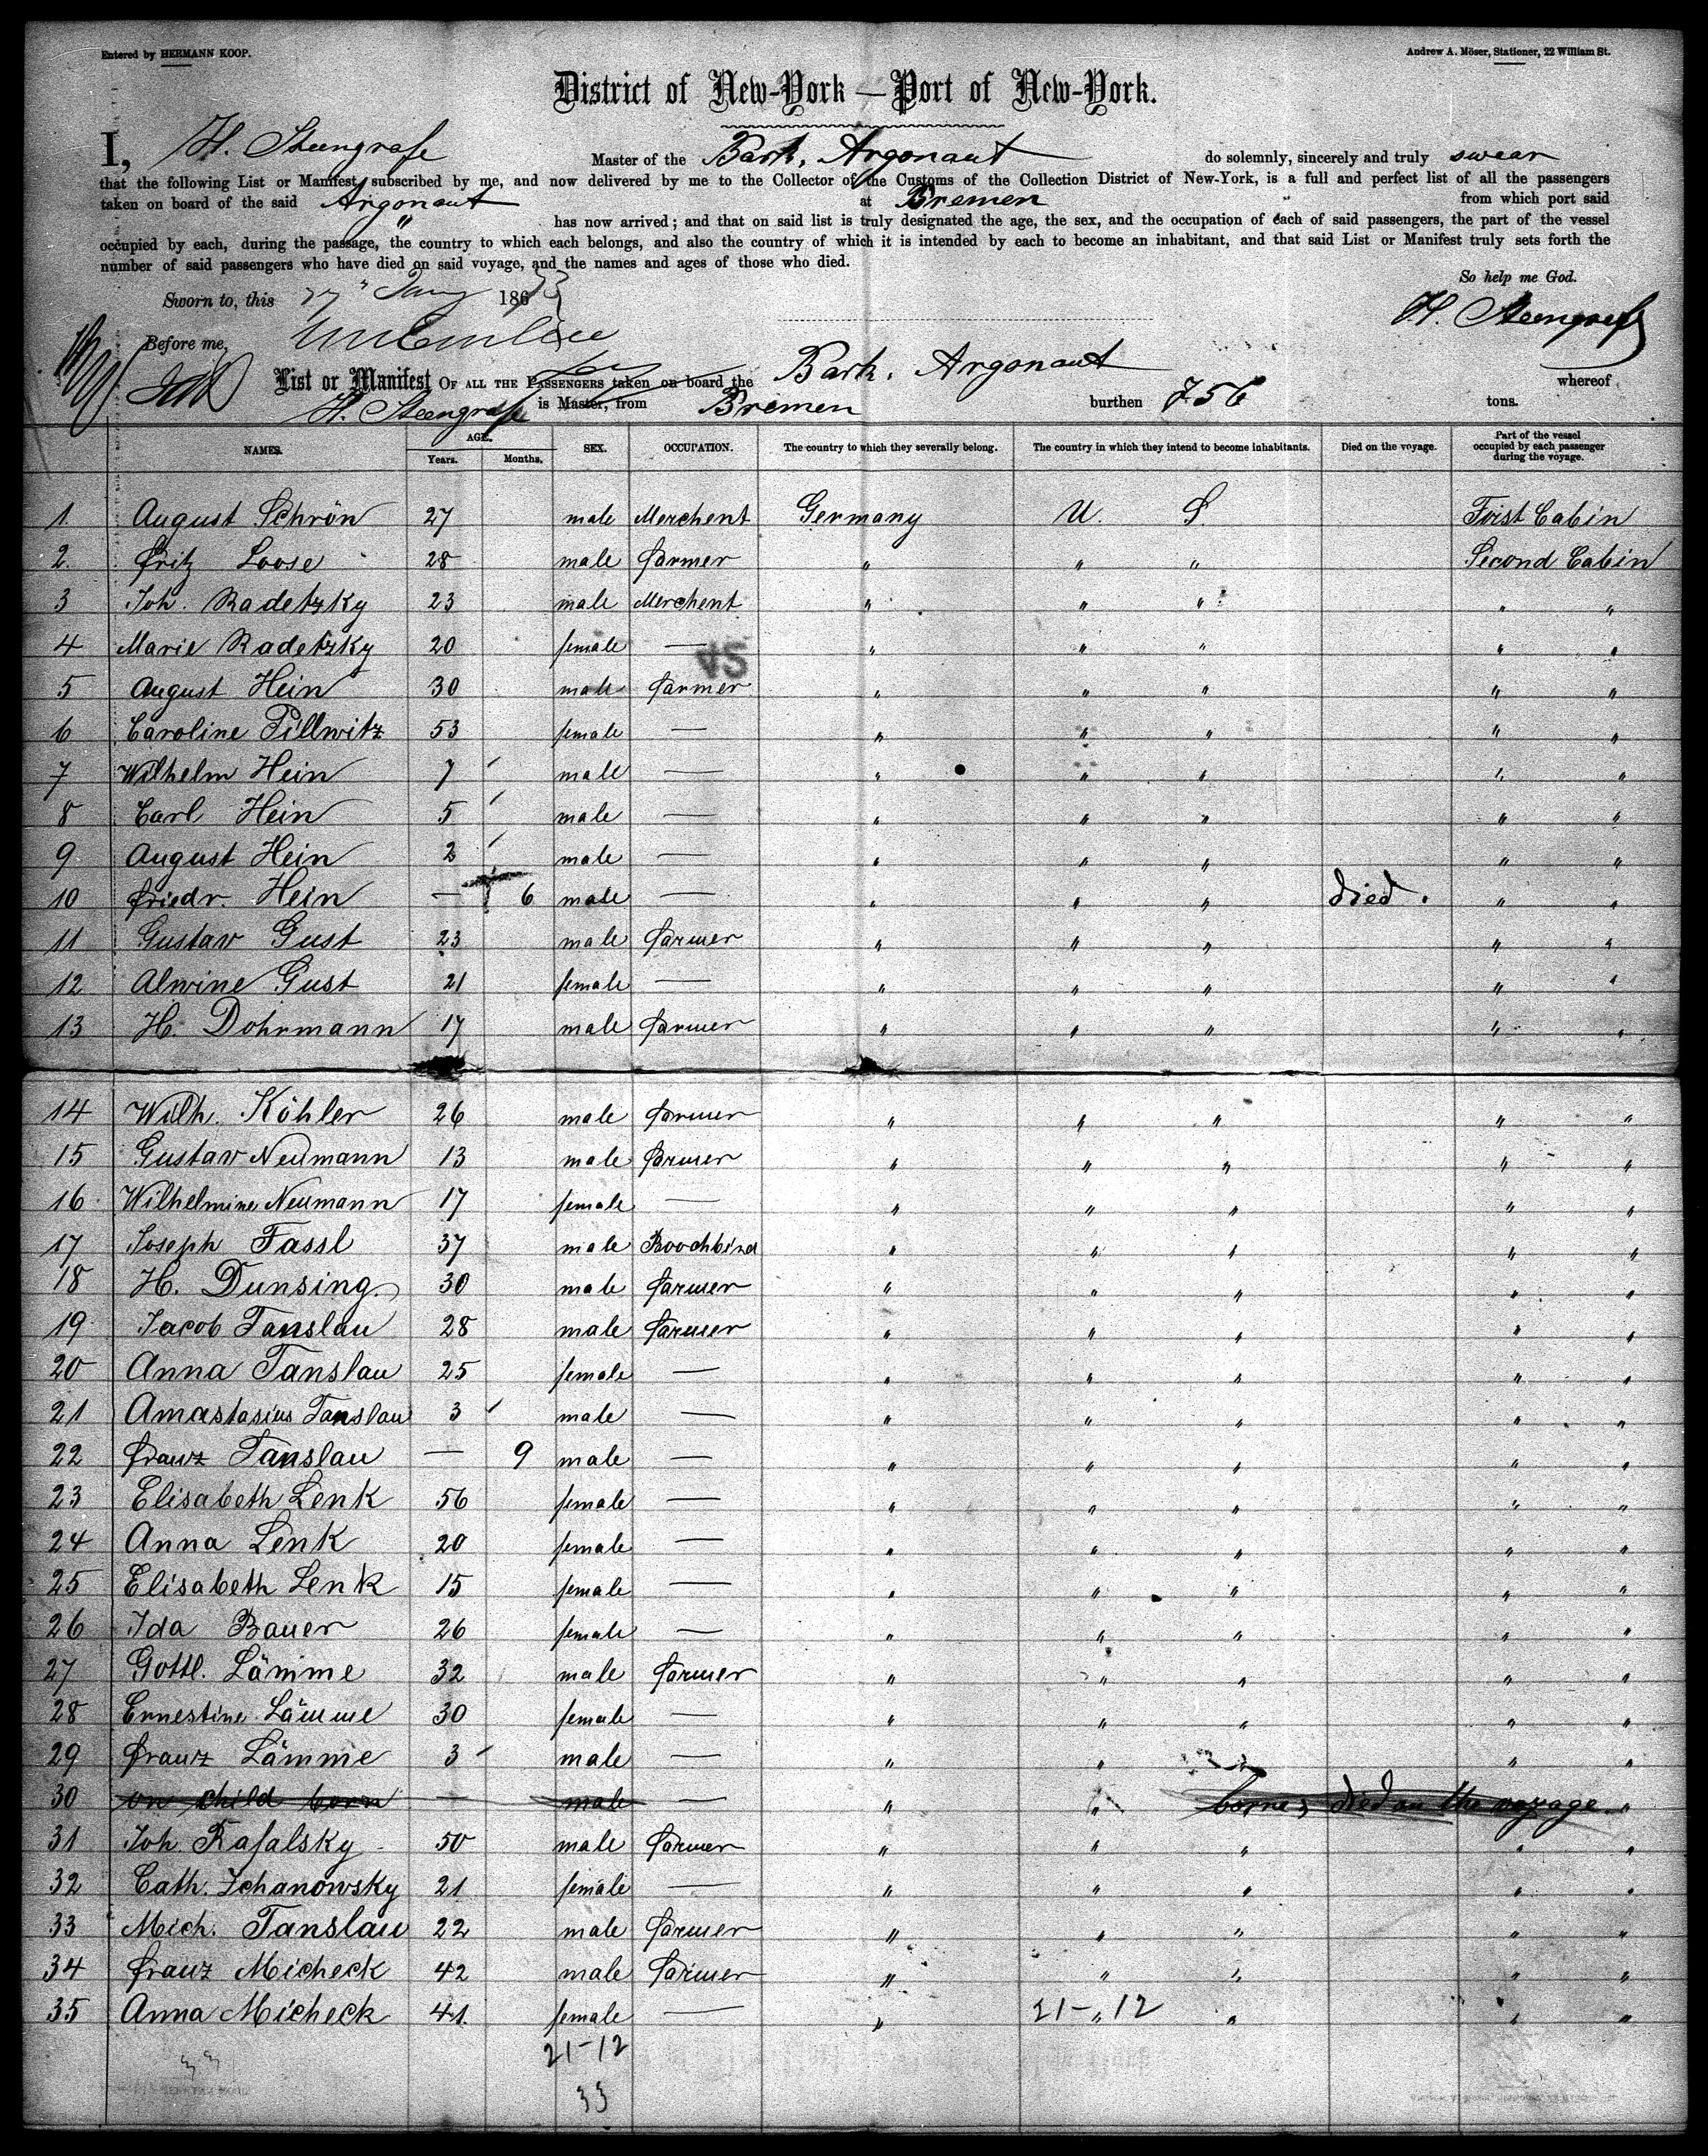 Entered by HERMANN KOOP.
Andrew A. Möser, Stationer, 22 William St.
District of New-York — Port of New-York.
I, H. Steengrafe Master of the Bark, Argonaut do solemnly, sincerely and truly swear
that the following List or Manifest, subscribed by me, and now delivered by me to the Collector of the Customs of the Collection District of New-York, is a full and perfect list of all the passengers
taken on board of the said Argonaut at Bremen from which port said
" has now arrived; and that on said list is truly designated the age, the sex, and the occupation of each of said passengers, the part of the vessel
occupied by each, during the passage, the country to which each belongs, and also the country of which it is intended by each to become an inhabitant, and that said List or Manifest truly sets forth the
number of said passengers who have died on said voyage, and the names and ages of those who died.
So help me God.
Sworn to, this 27" Jany 1873
H. Steengrafe
Before me,
List or Manifest OF ALL THE PASSENGERS taken on board the Bark, Argonaut whereof
H. Steengrafe is Master, from Bremen burthen 756 tons.
NAMES. AGE. Years. Months. SEX. OCCUPATION. The country to which they severally belong. The country in which they intend to become inhabitants. Died on the voyage. Part of the vessel occupied by each passenger during the voyage.
1. August Schrön 27 male Merchent Germany U. S First Cabin
2. Fritz Loose 28 male farmer " " " Second Cabin
3 Joh. Radetzky 23 male Merchent " " " " "
4 Marie Radetzky 20 female — " " " " "
5 August Hein 30 male farmer " " " " "
6 Caroline Pillwitz 53 female — " " " " "
7 Wilhelm Hein 7 male — " " " " "
8 Carl Hein 5 male — " " " " "
9 August Hein 2 male — " " " " "
10 Friedr. Hein — 6 male — " " " died. " "
11 Gustav Gust 23 male farmer " " " " "
12 Alwine Gust 21 female — " " " " "
13 H. Dohrmann 17 male farmer " " " " "
14 Wilh. Köhler 26 male farmer " " " " "
15 Gustav Neumann 13 male farmer " " " " "
16 Wilhelmine Neumann 17 female — " " " " "
17 Joseph Fassl 37 male Boochbind " " " " "
18 H. Dunsing 30 male farmer " " " " "
19 Jacob Tanslau 28 male farmer " " " " "
20 Anna Tanslau 25 female — " " " " "
21 Amastasius Tanslau 3 male — " " " " "
22 Franz Tanslau — 9 male — " " " " "
23 Elisabeth Lenk 56 female — " " " " "
24 Anna Lenk 20 female — " " " " "
25 Elisabeth Lenk 15 female — " " " " "
26 Ida Bauer 26 female — " " " " "
27 Gottl. Lämme 32 male farmer " " " " "
28 Ernestine Lämme 30 female — " " " " "
29 Franz Lämme 3 male — " " " " "
30 on child born — male — " " borne, died on the voyage "
31 Joh. Rafalsky 50 male farmer " " " " "
32 Cath. Zchanowsky 21 female — " " " " "
33 Mich. Tanslau 22 male farmer " " " " "
34 Franz Micheck 42 male farmer " " " " "
35 Anna Micheck 41 female — " 21-"12 " " "
21-12
33
33